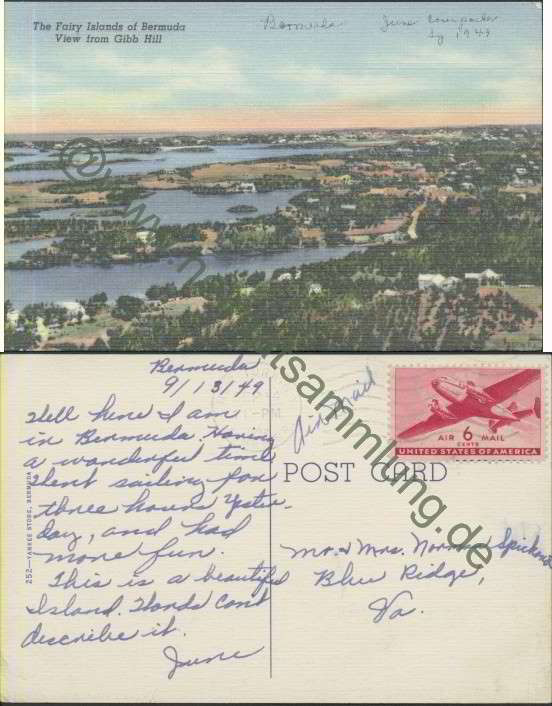 The Fairy Islands of Bermuda
View from Gibb Hill
Bermuda
June
1949
Bermuda
9/13/49
Well here I am
in Bermuda. Having
a wonderful time
Went sailing for
three hours Yester-
day, and had
more fun.
This is a beautiful
Island. Words can't
describe it.
June
252—YANKEE STORE, BERMUDA
PM
Air mail
AIR 6 MAIL
CENTS
UNITED STATES OF AMERICA
POST CARD
Mr. & Mrs. Norman
Blue Ridge,
Va.